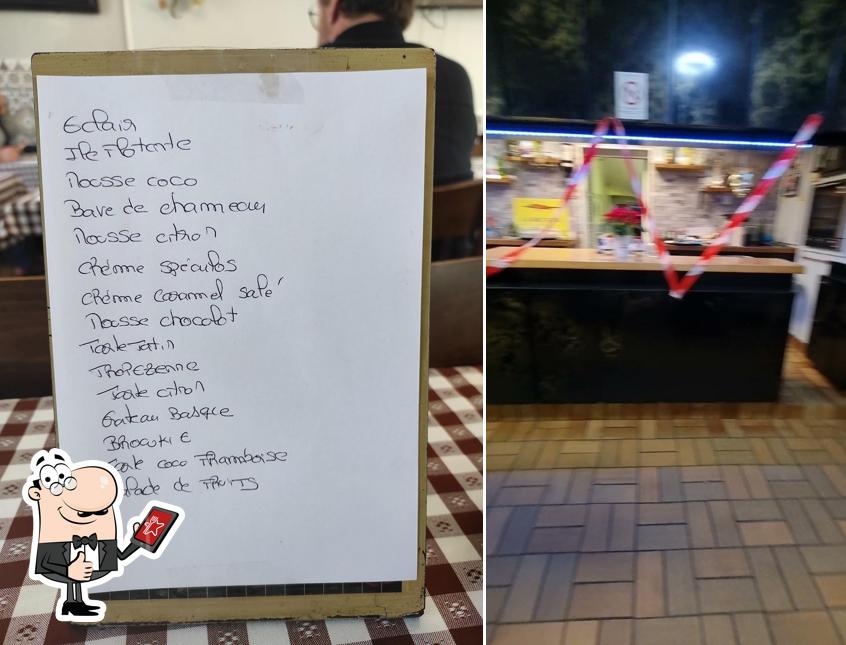 Eclair
Ile Flotante
Mousse coco
Bave de chameau
Mousse citron
Crème spéculos
Crème caramel salé
Mousse chocolat
Tarte Tatin
Tropézienne
Tarte citron
Gateau Basque
Brownie
coco Framboise
de Fruits